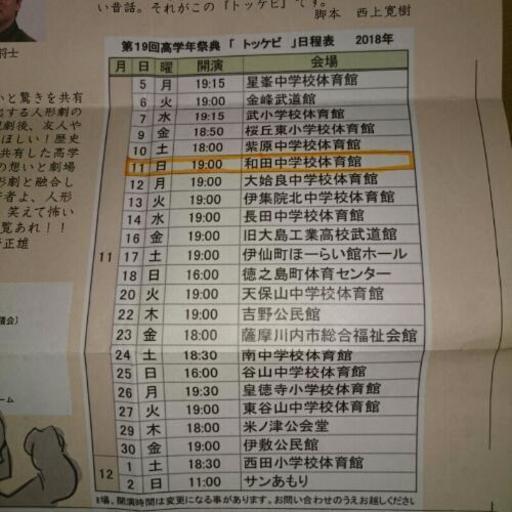 い昔話。それがこの『トッケビ』です。
脚本 西上寛樹
将士
第19回高学年祭典「 トッケビ 」日程表 2018年
月 日 曜 開演 会場
5 月 19:15 星峯中学校体育館
6 火 19:00 金峰武道館
7 水 19:15 武小学校体育館
9 金 18:50 桜丘東小学校体育館
10 土 18:00 紫原中学校体育館
11 日 19:00 和田中学校体育館
12 月 19:00 大姶良中学校体育館
13 火 19:00 伊集院北中学校体育館
14 水 19:00 長田中学校体育館
16 金 19:00 旧大島工業高校武道館
11 17 土 19:00 伊仙町ほーらい館ホール
18 日 16:00 徳之島町体育センター
20 火 19:00 天保山中学校体育館
22 木 19:00 吉野公民館
23 金 18:00 薩摩川内市総合福祉会館
24 土 18:30 南中学校体育館
25 日 16:00 谷山中学校体育館
26 月 19:30 皇徳寺小学校体育館
27 火 19:00 東谷山中学校体育館
29 木 18:00 米ノ津公会堂
30 金 19:00 伊敷公民館
12 1 土 18:30 西田小学校体育館
2 日 11:00 サンあもり
場、開演時間は変更になる事があります。お問い合わせのうえお越しください
いと驚きを共有
する人形劇の
劇後、友人や
ほしい！歴史
共有した高学
の想いと劇場
形劇と融合し
者よ、人形
笑えて怖い
覧あれ！！
正雄
議会）
ーム